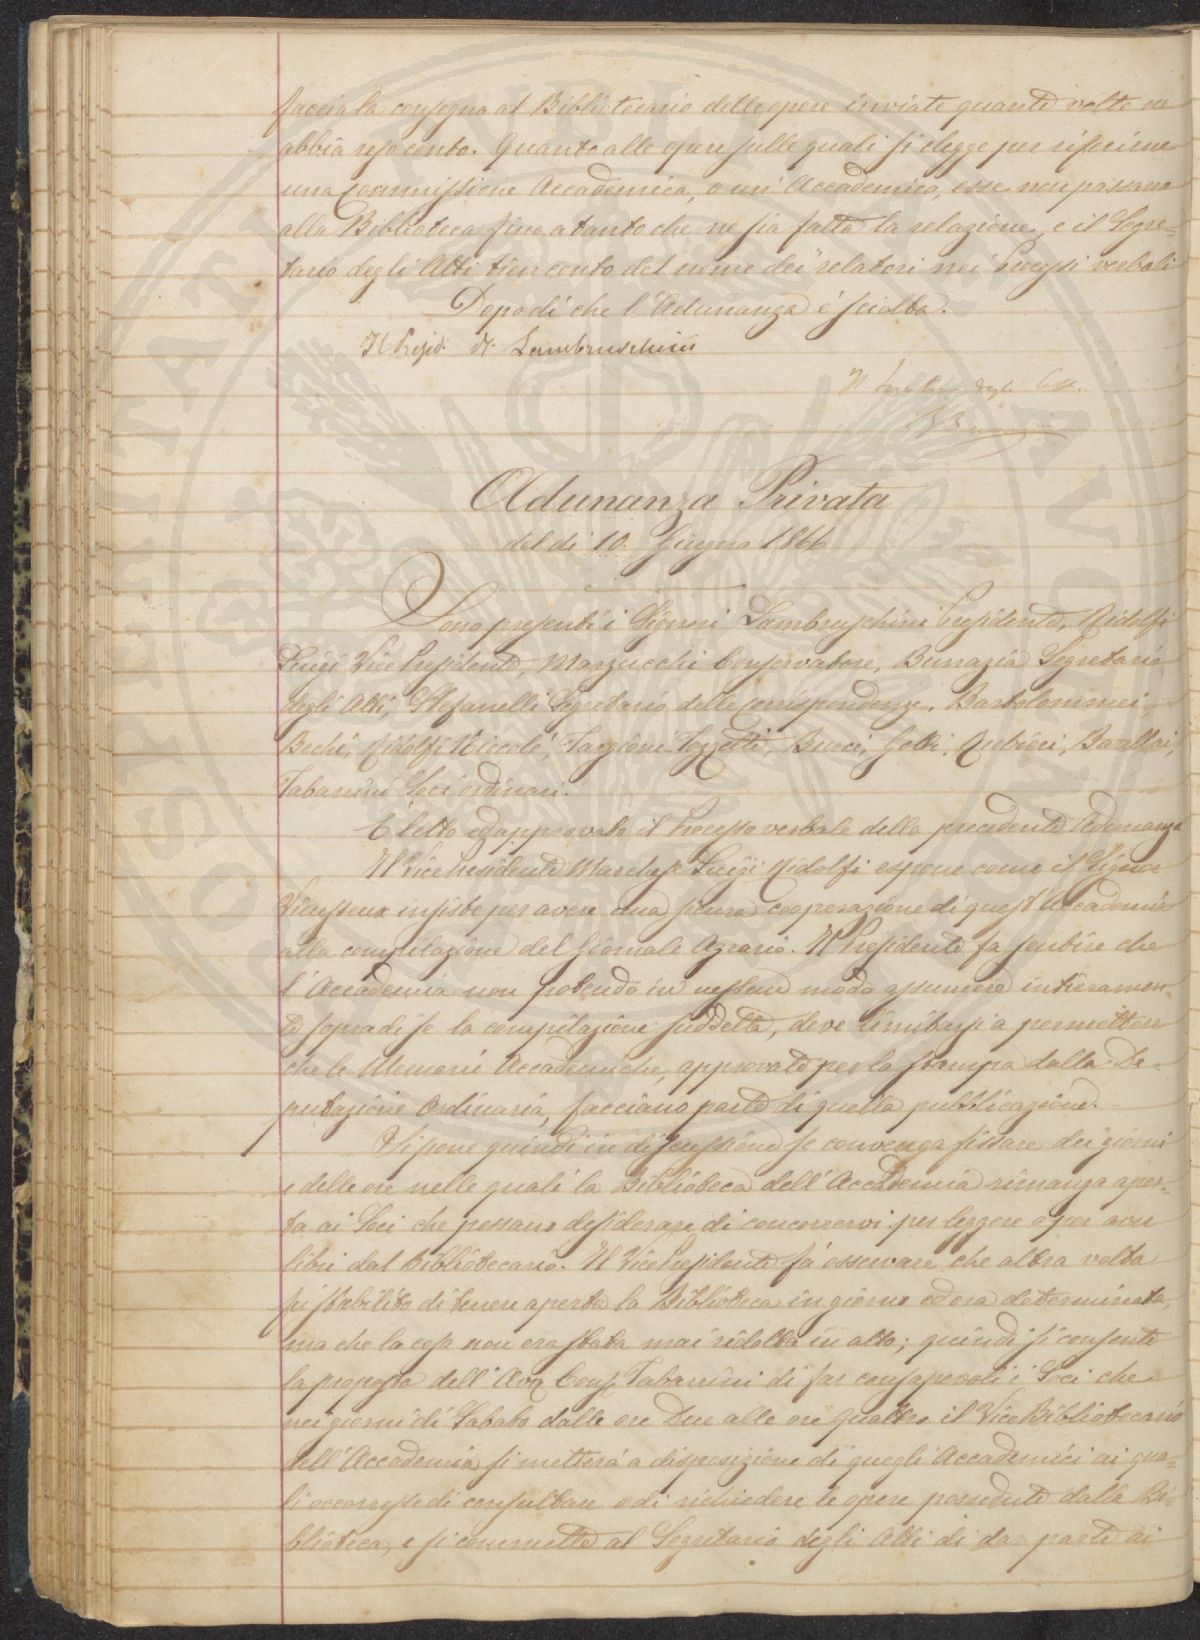 faccia la consegna al Bibliotecario delle opere inviate quante volte ne
abbia reso conto. Quanto alle opere sulle quali si elegge per riferirne
una Commissione Accademica, o un' Accademico, esse non passano
alla Biblioteca fino a tanto che ne sia fatta la relazione, e il Segre=
tario degli Atti tien conto del nome dei relatori nei Processi verbali
Dopo di che l'Adunanza è sciolta.
Il Presid. R. Lambruschini
Il Segretario degli Atti
Adunanza Privata
del dì 10. Giugno 1866
Sono presenti i Signori Lambruschini Presidente, Ridolfi
Luigi Vice Presidente, Marzucchi Conservatore, Burnazia Segretario
degli Atti, Stefanelli Segretario delle corrispondenze, Bartolommei,
Bechi, Ridolfi Niccolò, Targioni Tozzetti, Burci, Gotti, Rubieri, Barellai,
Tabarrini Soci ordinari.
È letto ed approvato il Processo verbale della precedente Adunanza
Il Vice Presidente Marchese Luigi Ridolfi espone come il Signor
Vieusseux insiste per avere una sicura cooperazione di quest'Accademia
alla compilazione del Giornale Agrario. Il Presidente fa sentire che
l'Accademia non potendo in nessun modo assumere intieramen=
te sopra di se la compilazione suddetta, deve limitarsi a permettere
che le Memorie Accademiche, approvate per la stampa dalla De=
putazione Ordinaria, facciano parte di quella pubblicazione.
Si pone quindi in discussione se convenga fissare dei giorni
e delle ore nelle quali la Biblioteca dell'Accademia rimanga aper=
ta ai Soci che possano desiderare di concorrervi per leggere o per aver
libri dal Bibliotecario. Il Vice Presidente fà osservare che altra volta
fu stabilito di tenere aperta la Biblioteca in giorno ed ora determinata,
ma che la cosa non era stata mai ridotta in atto; quindi si consente
la proposta dell'Avv. Cons. Tabarrini di far consapevoli i Soci che
nei giorni di Sabato dalle ore Due alle ore Quattro il Vice Bibliotecario
dell'Accademia si metterà a disposizione di quegli Accademici ai qua=
li occorresse di consultare o di richiedere le opere possedute dalla Bi=
blioteca, e si commette al Segretario degli Atti di dar parte ai